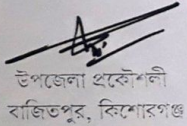 উপজেলা প্রকৌশলী
বাজিতপুর, কিশোরগঞ্জ